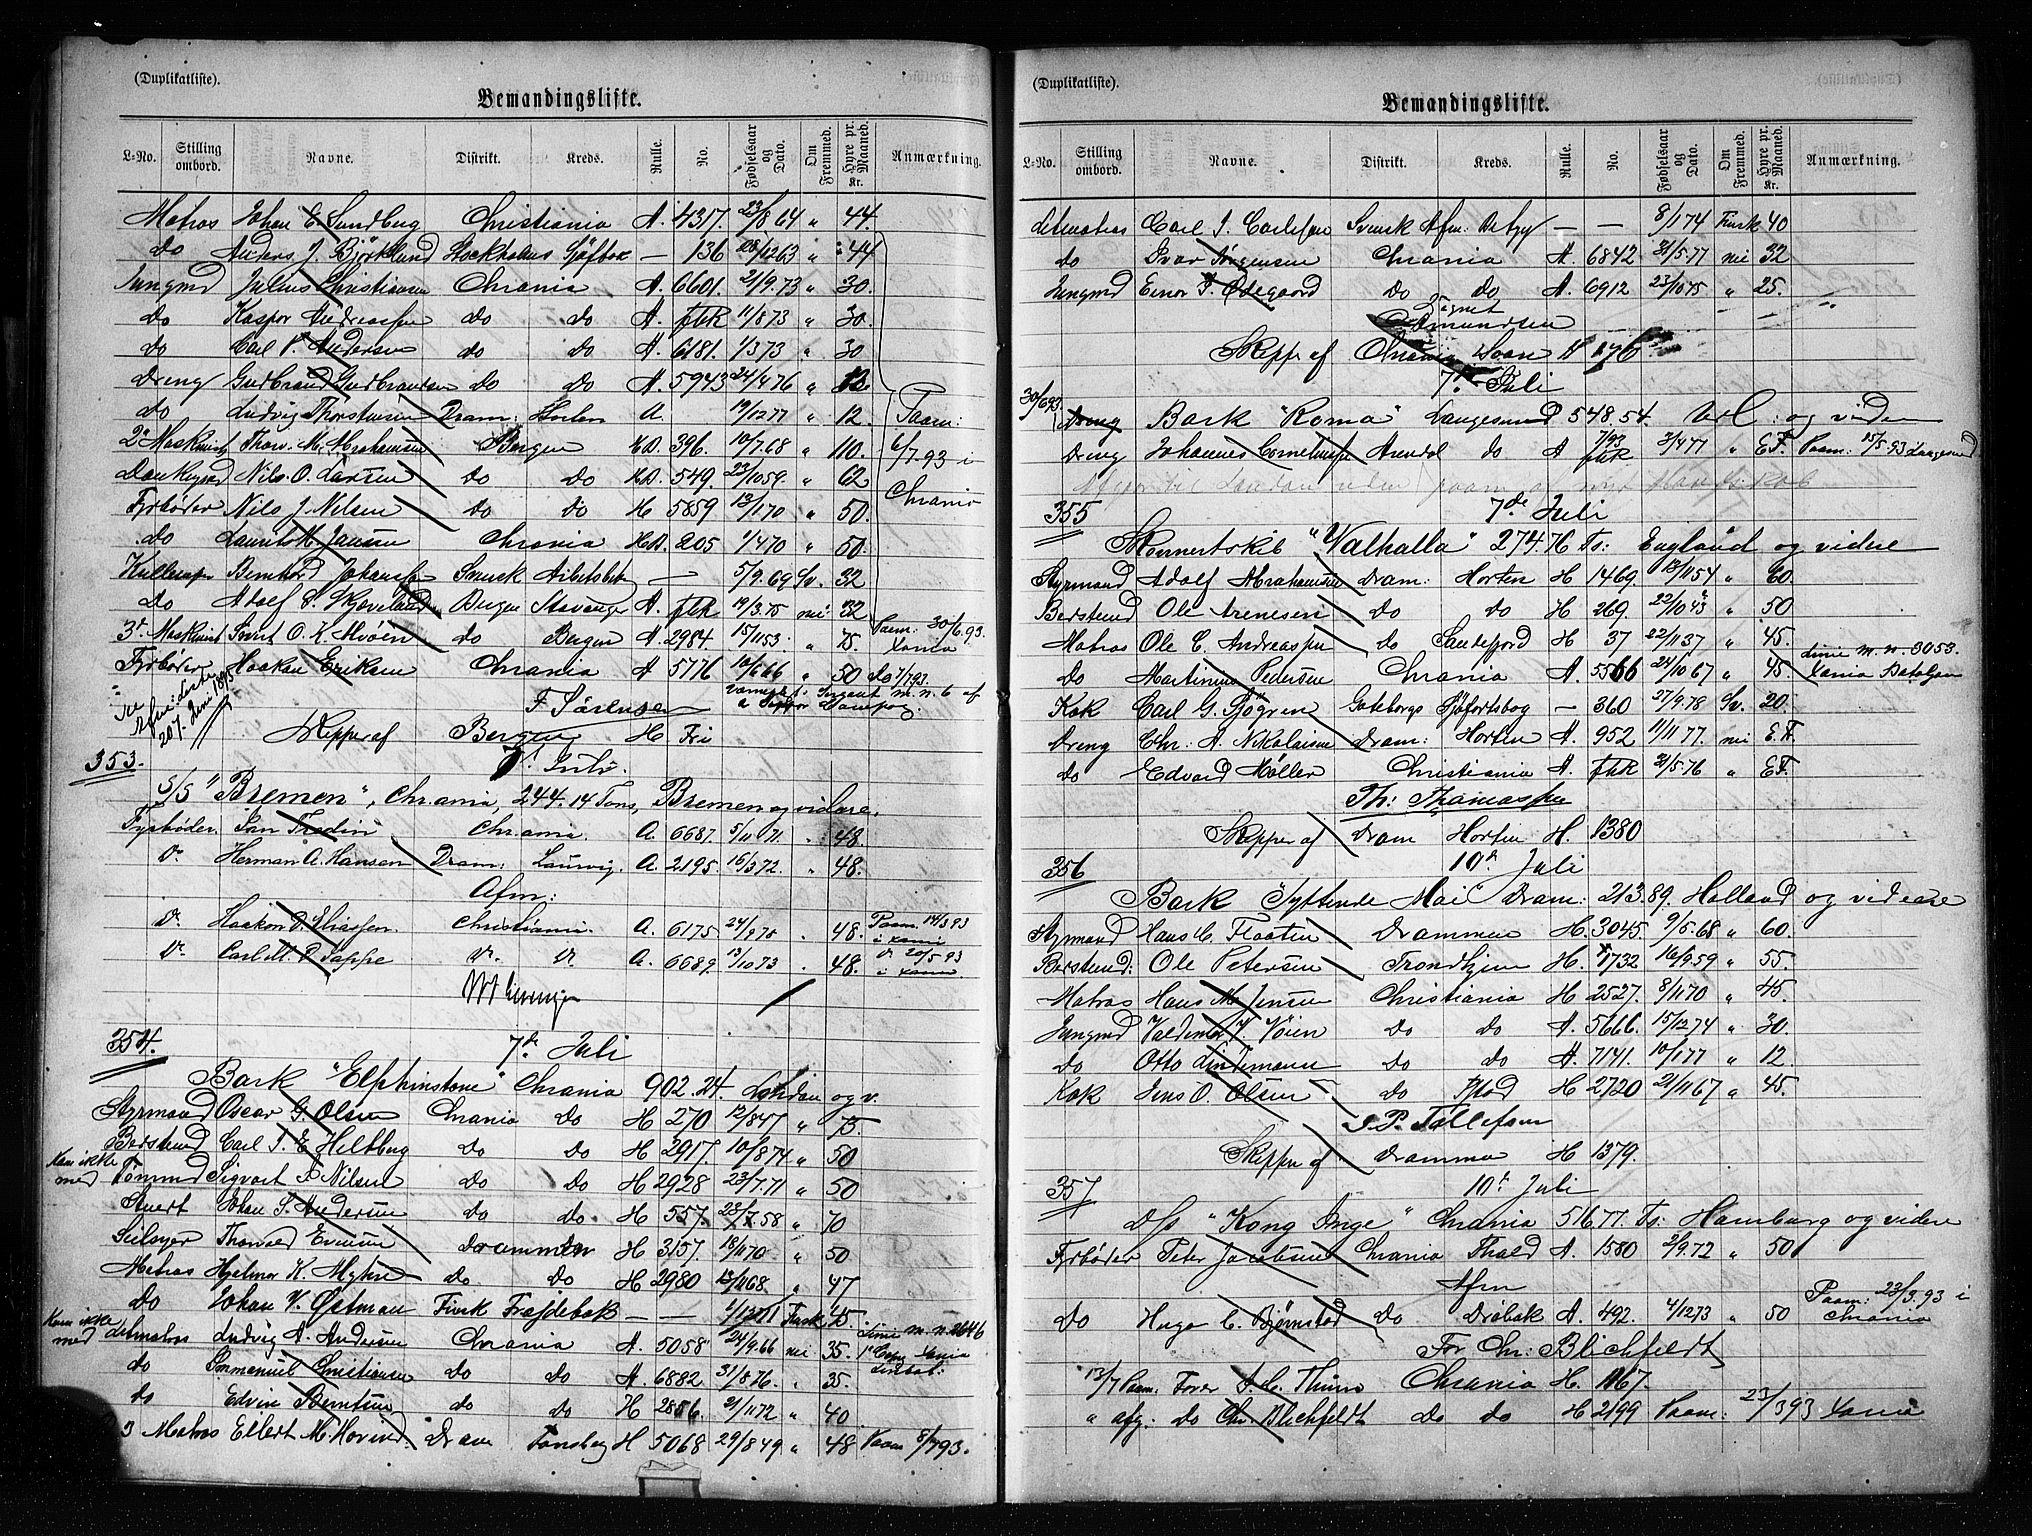 (Duplikatliste).
Bemandingsliste.
L-No. Stilling ombord. Navne. Distrikt. Kreds. Rulle. No. Fødselsaar og Dato. Om Fremmed. Hyre pr. Maaned. Kr. Anmærkning.
Matros Johan E. Sundberg Christiania A. 4317. 23/8 64 " 44.
do Anders J. Björklund Stockholms Sjöfbok — 136 /12 63 " 44
Jungmd Julius Christiansen Chrania A. 6601. 21/9.73 " 30.
do Kaspar Andreassen do do A. fbk 11/8 73 " 30.
do Carl P. Andersen do do A. 6181. 1/3 73 " 30
Dreng Gudbrand Gudbrandsen do do A. 5943 24/4 76 "
do Ludvig Thorstensen Dram: Horten A. 19/12 77 " 12 Paam:
2n Maskinist Thorv. M. Abrahamsen Bergen H.D. 396. 10/7.68 " 110. 6/7.93 i
Donkeymd Nils O. Larsen do do H.D. 549. 23/10 59. " 62 Chrania
Fyrbøder Nils J. Nilsen do do H 5859 13/1 70 " 50.
do Laurits M. Jansen Chrania H.D. 205 1/4 70 " 50.
Kullemper Bernhard Johansson Svensk Arbetsbok — 5/9.69 Sv. 32
do Adolf S. Skjeveland Bergen Stavanger A. fbk 19/3.75 nei 32
3die Maskinist Sivert O. K. Hvøen do Bergen A. 2984. 15/11 53. " 75. Paam: 30/6.93. Xania
Fyrbøder Haakon Eriksen Chrania A 5776 10/6 66 " 50 do 7/7 93.
F. Sørensen
Skipper af Bergen H Fri
353. 7de Juli.
S/S "Bremen", Chrania, 244.14 Tons, Bremen og videre.
Fyrbøder Jan Fredin Chrania. A. 6687. 5/11 71. " 48.
do Herman A. Hansen Dram: Laurvig. A. 2195. 16/3 72. " 48.
Afm:
do Haakon O. Eliassen. Christiania. A. 6175. 24/9 70 . 48. Paam. 14/3 93 i Xania
do Carl M. P. Tappe do do A. 6689 13/10 73 . 48. do 20/5 93 i Xania
354. 7de Juli
Bark "Elphinstone" Chrania 902.24. London og v.
Styrmand Oscar G. Olsen Chrania do H 270 12/8 47 " 75.
Baatsmd Carl J. E. Heltberg do do H 2917. 10/8 74 " 50
Kom ikke med Tømmd Sigvart F. Nilsen do do H 2928 23/7.71 " 50
Stuert Johan S. Andersen do do H 557. 23/7.58 " 70
Seilmager Thorvald Evensen Drammen H 3157. 18/1 70. " 50
Matros Hjalmar K. Myhre do do H 2980 13/11 68. " 47
do Johan V. Østman Finsk Frejdebok — — 1/12 71 Finsk 45.
Kom ikke med Letmatros Ludvig A. Andersen Chrania A. 5058 24/9.66 nei 35. Linie m. n. 2646
do Emmanuel Christiansen do do A. 6882. 31/8 76. . 35.
do Edvin Berntsen do do H 2856. 21/11 72 " 40
Matros Eilert M. Hovind. Dram Tønsberg H 5068 29/8 49 " 48 Paam 8/7 93.
(Duplikatliste).
Bemandingsliste.
L-No. Stilling ombord. Navne. Distrikt. Kreds. Rulle. No. Fødselsaar og Dato. Om Fremmed. Hyre pr. Maaned. Kr. Anmærkning.
Letmatros Carl J. Carlsson Svensk Afm: Betyg — — 8/1 74 Finsk 40
do Ivar Jørgensen Chrania A. 6842 31/5.77 nei 32
Jungmd Einar F. Ødegaard do do A. 6912 23/10 75 " 25.
Signet
Amundsen
Skipper af Chrania Soon H 176
7de Juli
30/6 93. Dreng Bark "Roma" Langesund 548.54. og videre
Dreng Johannes Corneliussen Arendal do A 7/93 fbk 3/4 77 " E.F. Paam: 15/5.93 Langesund
355 7de Juli
Skonnertskib "Valhalla" 274.76 Ts: England og videre
Styrmand Adolf Abrahamsen Dram: Horten H 1469. 13/11 54 " 60.
Baatsmd Ole Arnesen do do H 269. 22/10 43 " 50
Matros Ole C. Andreassen do Sandefjord H 37 22/11 37 " 45. Linie m. n. 3053.
do Martinius Pedersen Chrania A. 5566 24/10 67 " 45 Xania Bataljon
Kok Carl G. Sjögren Göteborgs Sjöfartsbog — 360 27/9.78 Sv. 20.
Dreng Chr: A. Nikolaisen Dram: Horten A. 952 11/11 77. nei E.F.
do Edvard Møller Christiania A. fbk 21/5.76 " E.F.
Th: Thomassen
Skipper af Dram Horten H. 1380
356 10de Juli
Bark "Syttende Mai" Dram: 213.89. Holland og videre
Styrmand Hans C. Flaaten Drammen H. 3045. 9/5.68 " 60.
Baatsmd: Ole Petersen Trondhjem H. 1732 16/9 59 " 55.
Matros Hans M. Jensen Christiania H 2527. 8/1 70 " 45.
Jungmd Valdemar K. Vøien do do A. 5666. 15/12 74 " 30.
do Otto Lindemann do do A. 7141. 10/1 77 " 12
Kok Jens O. Olsen do H 2720 21/11 67 " 45.
J. P. Tollefsen
Skipper af Drammen H 1379.
357 10de Juli
D/s "Kong Inge" Chrania 516.77. Ts: Hamburg og videre
Fyrbøder Peter Jacobsen Chrania A. 1580 2/9.72 " 50
Afm
do Hugo C. Bjørnstad do Drøbak A. 492. 4/12 73 " 50 Paam: 23/3.93 i Chrania
For Chr: Blichfeldt
13/7 Paam: Fører A. C. Thurn Chrania H. 1167.
" afg: do Chr. Blichfeldt do do H 2199 Paam: 23/3 93 Xania